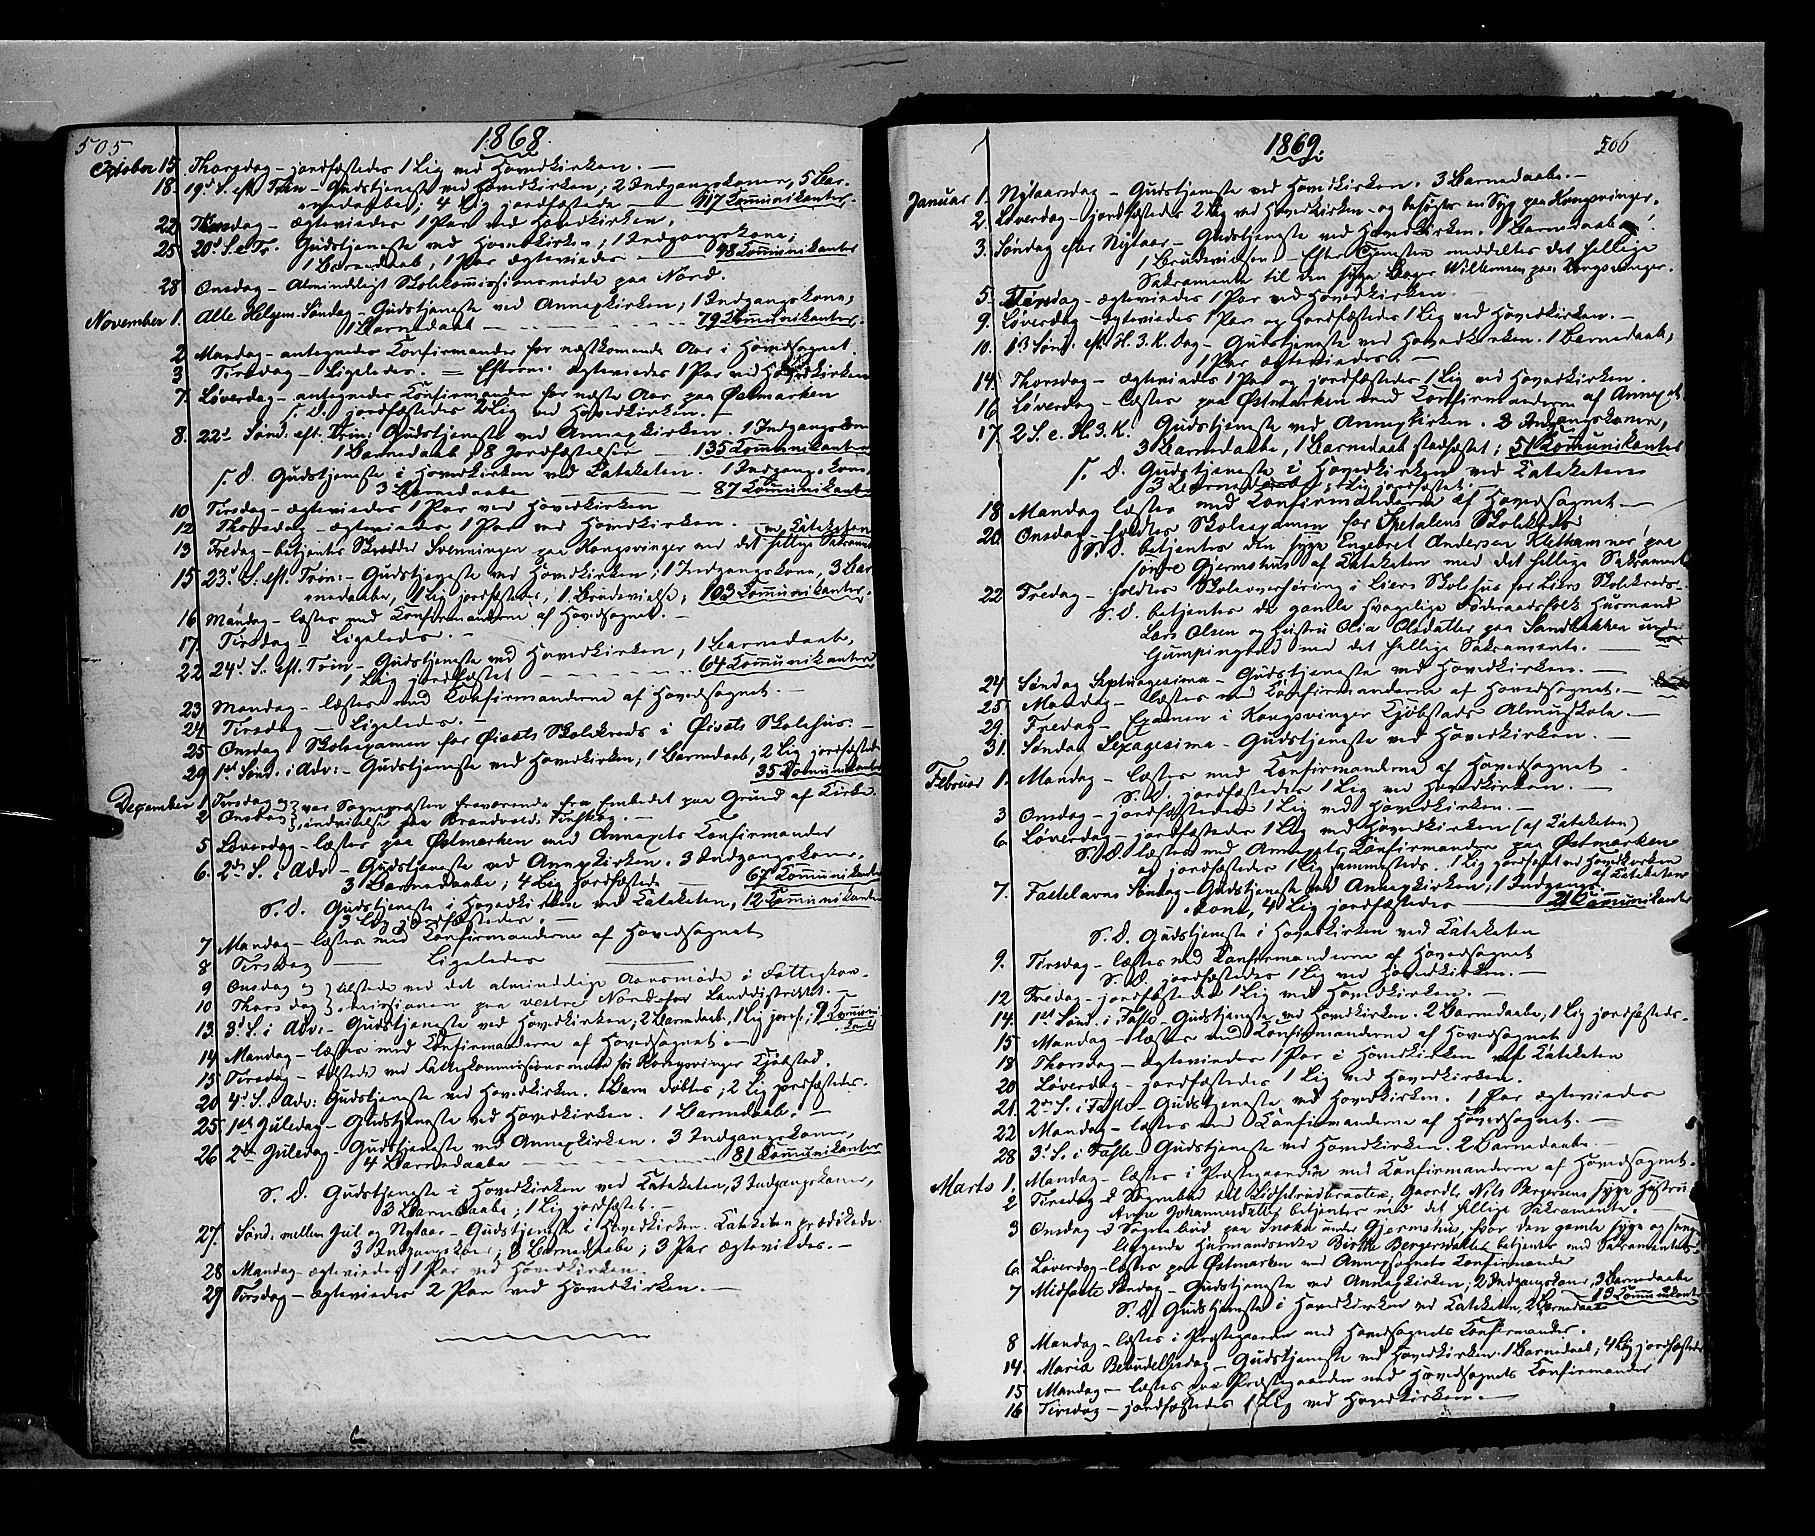 505
1868.
October 15. Thorsdag - jordfæstedes 1 Lig ved Hovedkirken. -
18. 19d S. eft. Trin - Gudstjeneste ved Hovedkirken; 2 Indgangskoner, 5 Bar-
nedaabe; 4 Lig jordfæstede - 117 Communikanter.
22. Thorsdag - ægteviedes 1 Par ved Hovedkirken.
25. 20d S. e. Tr. Gudstjeneste ved Hovedkirken; 1 Indgangskone;
1 Barnedaab; 1 Par ægteviedes - 48 Communikanter
28. Onsdag - Almindeligt Skolekomissionsmøde paa Nord.
November 1. Alle Helgens Søndag - Gudstjeneste ved Annexkirken; 1 Indgangskone;
1 Barnedaab - 79 Communikanter.
2. Mandag - antegnedes Confirmander for næstkomende Aar i Hovedsognet.
3. Tirsdag - Ligeledes. = Efterm. ægteviedes 1 Par ved Hovedkirken
7. Løverdag - antegnedes Confirmander for næste Aar paa Østmarken
S. D. jordfæstedes 2 Lig ved Hovedkirken. -
8. 22d Sønd. eft. Trin: Gudstjeneste ved Annexkirken. 1 Indgangskone
1 Barnedaab, 8 Jordfæstelser - 135 Communikanter
S. D. Gudstjeneste i Hovedkirken ved Kateketen. 1 Indgangskone,
3 Barnedaabe - 87 Communikanter
10. Tirsdag - ægteviedes 1 Par ved Hovedkirken
12. Thorsdag - ægteviedes 1 Par ved Hovedkirken. - ved Kateketen
13. Fredag - betjentes Skrædder Svenningsen paa Kongsvinger med det hellige Sakrament
15. 23d S. eft. Trin: - Gudstjeneste ved Hovedkirken; 1 Indgangskone, 3 Bar-
nedaabe, 1 Lig jordfæstedes, 1 Brudevielse; 103 Communikanter.
16. Mandag - læstes med Confirmanderne af Hovedsognet. -
17. Tirsdag - Ligeledes. -
22. 24d S. eft. Trin - Gudstjeneste ved Hovedkirken, 1 Barnedaab,
1 Lig jordfæstet - 64 Communikanter
23. Mandag - læstes med Confirmanderne af Hovedsognet. -
24. Tirsdag - Ligeledes. -
25. Onsdag. Skoleexamen for Øiaets Skolekreds i Øiaets Skolehus. -
29. 1ste Sønd. i Adv: - Gudstjeneste ved Hovedkirken, 1 Barnedaab, 2 Lig jordfæstede
35 Communikanter
December 1. Tirsdag og } var Sognepræsten fraværende fra Embedet paa Grund af Kirke-
2. Onsdag } indvielse paa Brandvold, Vinger.
5. Løverdag - læstes paa Østmarken med Annexets Confirmander
6. 2den S. i Adv - Gudstjeneste ved Annexkirken. 3 Indgangskoner,
3 Barnedaabe; 4 Lig jordfæstede - 67 Communikanter
S. D. Gudstjeneste i Hovedkirken ved Kateketen, 12 Communikanter
3 Lig jordfæstedes. -
7. Mandag - læstes med Confirmanderne af Hovedsognet
8. Tirsdag - Ligeledes
9. Onsdag og } tilstede ved det almindelige Aarsmøde i Fattigkom-
10. Thorsdag } missionen paa vestre Nord for Landdistriktet. -
13. 3d S. i Adv: - Gudstjeneste ved Hovedkirken, 2 Barnedaabe, 1 Lig jordf.; 9 Communi-
kanter
14. Mandag - læstes med Confirmanderne af Hovedsognet. -
15. Tirsdag - tilstede ved Fattigkommissionsmøde for Kongsvinger Kjøbstad.
20. 4d S. i Adv: Gudstjeneste ved Hovedkirken. 1 Barn døbtes; 2 Lig jordfæstedes.
25. 1ste Juledag - Gudstjeneste ved Hovedkirken. 1 Barnedaab. -
26. 2den Juledag - Gudstjeneste ved Annexkirken. 3 Indgangskoner,
4 Barnedaabe - 81 Communikanter
S. D. Gudstjeneste i Hovedkirken ved Kateketen, 3 Indgangskoner,
3 Barnedaabe; 1 Lig jordfæstet. -
27. Sønd. mellem Jul og Nytaar - Gudstjeneste i Hovedkirken. Kateketen prædikede.
3 Indgangskoner; 8 Barnedaabe; 3 Par ægteviedes. -
28. Mandag - ægteviedes 1 Par ved Hovedkirken.
29. Tirsdag - ægteviedes 2 Par ved Hovedkirken. -
1869.
506
Januar 1. Nytaarsdag - Gudstjeneste ved Hovedkirken. 3 Barnedaabe. -
2. Løverdag - jordfæstedes 2 Lig ved Hovedkirken - og besøgtes en Syg paa Kongsvinger.
3. Søndag efter Nytaar - Gudstjeneste ved Hovedkirken. 1 Barnedaab.
1 Brudevielse. - Efter Tjenesten meddeltes det hellige
Sakramente til den syge Bager Wilhemsen paa Kongsvinger.
5. Tirsdag - ægteviedes 1 Par ved Hovedkirken.
9. Løverdag - ægteviedes 1 Par og jordfæstedes 1 Lig ved Hovedkirken. -
10. 1ste Sønd. eft. H. 3. K. Dag - Gudstjeneste ved Hovedkirken. 1 Barnedaab,
1 Par ægteviedes. -
14. Thorsdag - ægteviedes 1 Par og jordfæstedes 1 Lig ved Hovedkirken.
16. Løverdag - læstes paa Østmarken med Confirmanderne af Annexet
17. 2 S. e. H. 3. K. Gudstjeneste ved Annexkirken. 2 Indgangskoner,
3 Barnedaabe, 1 Barnedaab stadfæstet; 51 Communikanter
S. D. Gudstjeneste i Hovedkirken ved Kateketen
3 Barnedaabe; 1 Lig jordfæstet. -
18. Mandag læstes med Confirmanderne af Hovedsognet -
20. Onsdag - holdtes Skoleexamen for Spetalens Skolekreds
S. D. betjentes den syge Engebret Andersen Klethammer paa
søndre Gjermshus af Kateketen med det hellige Sakramente
22. Fredag - holdtes Skoleoverhøring i Liers Skolehus for Liers Skolekreds.
S. D. betjentes de gamle svagelige Føderaadsfolk Husmand
Lars Olsen og Hustru Olia Olsdatter paa Sandbakken under
Gumpingrud med det hellige Sakramente. -
24. Søndag Septuagesima - Gudstjeneste ved Hovedkirken. -
25. Mandag - læstes med Confirmanderne af Hovedsognet. -
29. Fredag - Examen i Kongsvinger Kjøbstads Almueskole. -
31. Søndag Sexagesima - Gudstjeneste ved Hovedkirken. -
Februar 1. Mandag - læstes med Confirmanderne af Hovedsognet
S. D. jordfæstedes 1 Lig ved Hovedkirken. -
3. Onsdag - jordfæstedes 1 Lig ved Hovedkirken. -
6. Løverdag - jordfæstedes 1 Lig ved Hovedkirken (af Kateketen)
S. D. læstes med Annexets Confirmander paa Østmarken
og jordfæstedes 1 Lig sammesteds. 1 Lig jordfæstet ved Hovedkirken
af Kateketen
7. Fastelavns Søndag - Gudstjeneste ved Annexkirken; 1 Indgangs-
kone, 4 Lig jordfæstedes - 21 Communikanter
S. D. Gudstjeneste i Hovedkirken ved Kateketen
9. Tirsdag - læstes med Confirmanderne af Hovedsognet
S. D. jordfæstedes 1 Lig ved Hovedkirken. -
12. Fredag - jordfæstedes 1 Lig ved Hovedkirken. -
14. 1ste Sønd. i Faste - Gudstjeneste ved Hovedkirken. 2 Barnedaabe, 1 Lig jordfæstedes.
15. Mandag - læstes med Confirmanderne af Hovedsognet
18. Thorsdag - ægteviedes 1 Par i Hovedkirken ved Kateketen
20. Løverdag - jordfæstedes 1 Lig ved Hovedkirken.
21. 2den S. i Faste - Gudstjeneste ved Hovedkirken. 1 Par ægteviedes
22. Mandag - læstes med Confirmanderne af Hovedsognet. -
28. 3d S. i Faste - Gudstjeneste ved Hovedkirken. 2 Barnedaabe. -
Marts 1. Mandag - læstes i Præstegaarden med Confirmanderne af Hovedsognet.
2. Tirsdag i Sognebud til Lidselrudbraaten, Gaardbr. Nils Bergersens syge Hustru
Anne Johannesdatter betjentes med det hellige Sakramente. -
3. Onsdag i Sognebud paa Snoka under Gjermshus, hvor den gamle syge og senge-
liggende Husmandsenke Birthe Bergersdatter betjentes med Sakramentet.
6. Løverdag - læstes paa Østmarken med Annexsognets Confirmander
7. Midfaste Søndag - Gudstjeneste ved Annexkirken, 2 Indgangskoner, 3 Barnedaabe
19 Communikanter
S. D. Gudstjeneste i Hovedkirken ved Kateketen, 2 Barnedaabe
8. Mandag - læstes i Præstegaarden med Hovedsognets Confirmander.
14. Maria Bebudelsesdag - Gudstjeneste ved Hovedkirken. 1 Barnedaab, 4 Lig jordfæstedes
15. Mandag - læstes paa Præstegaarden med Hovedsognets Confirmander
16. Tirsdag - jordfæstedes 1 Lig ved Hovedkirken. -